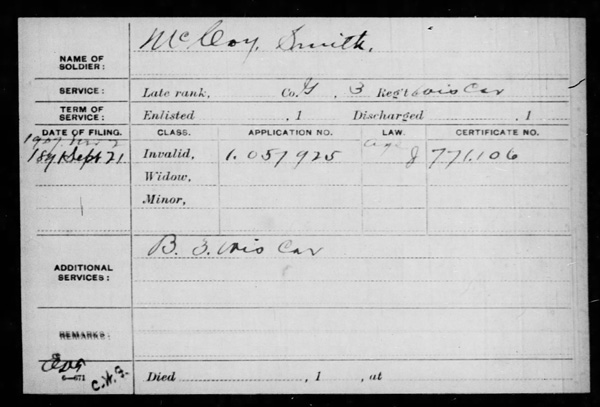 McCoy, Smith.
NAME OF SOLDIER:
SERVICE: Late rank, Co. G, 3 Reg't Wis Cav
TERM OF SERVICE: Enlisted , 1 Discharged , 1
DATE OF FILING. CLASS. APPLICATION NO. LAW. CERTIFICATE NO.
1907
1891 Sept 21 Invalid, 1.051925 age 771.106
Widow,
Minor,
ADDITIONAL SERVICES: B. 3. Wis Cav
REMARKS:
6—671 C.W.F. Died , 1 , at